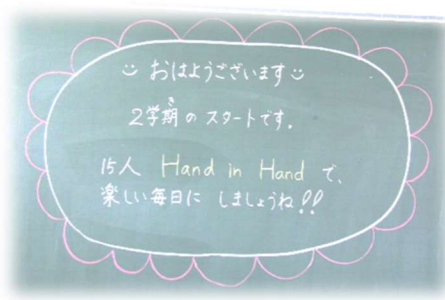 おはようございます
2学期のスタートです。
15人 Hand in Hand で、
楽しい毎日に しましょうね!!